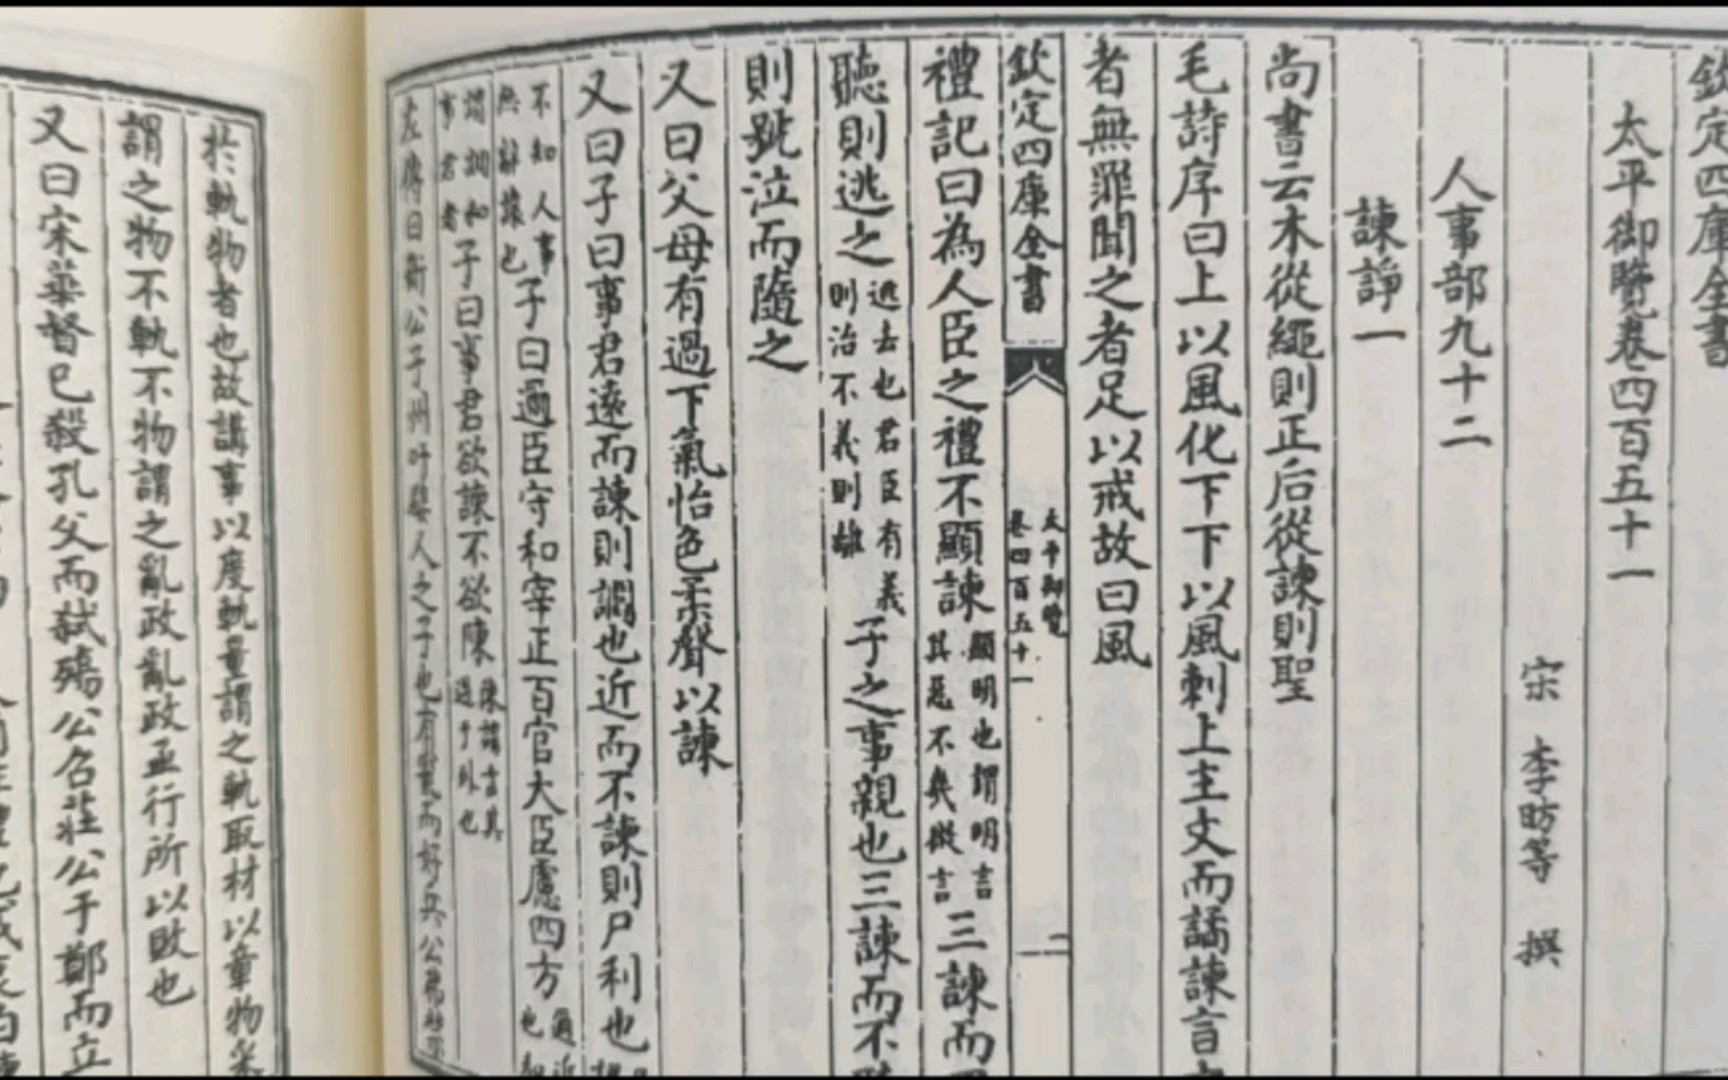 欽定四庫全書
太平御覽卷四百五十一
宋 李昉等 撰
人事部九十二
諫諍一
尚書云木從繩則正后從諫則聖
毛詩序曰上以風化下下以風刺上主文而譎諫言之
者無罪聞之者足以戒故曰風
欽定四庫全書
太平御覽
卷四百五十一
二
禮記曰為人臣之禮不顯諫顯明也謂明言其惡不幾微言三諫而不
聽則逃之逃去也君臣有義則治不義則離子之事親也三諫而不聽
則號泣而隨之
又曰父母有過下氣怡色柔聲以諫
又曰子曰事君遠而諫則讇也近而不諫則尸利也
不知人事無辭讓也子曰邇臣守和宰正百官大臣慮四方邇近也和
謂調和事君者子曰事君欲諫不欲陳陳謂言其過于外也
左傳曰衛公子州吁嬖人之子也有寵而好兵公弗禁
於軌物者也故講事以度軌量謂之軌取材以章物采
謂之物不軌不物謂之亂政亂政亟行所以敗也
又曰宋華督已殺孔父而弑殤公召莊公于鄭而立